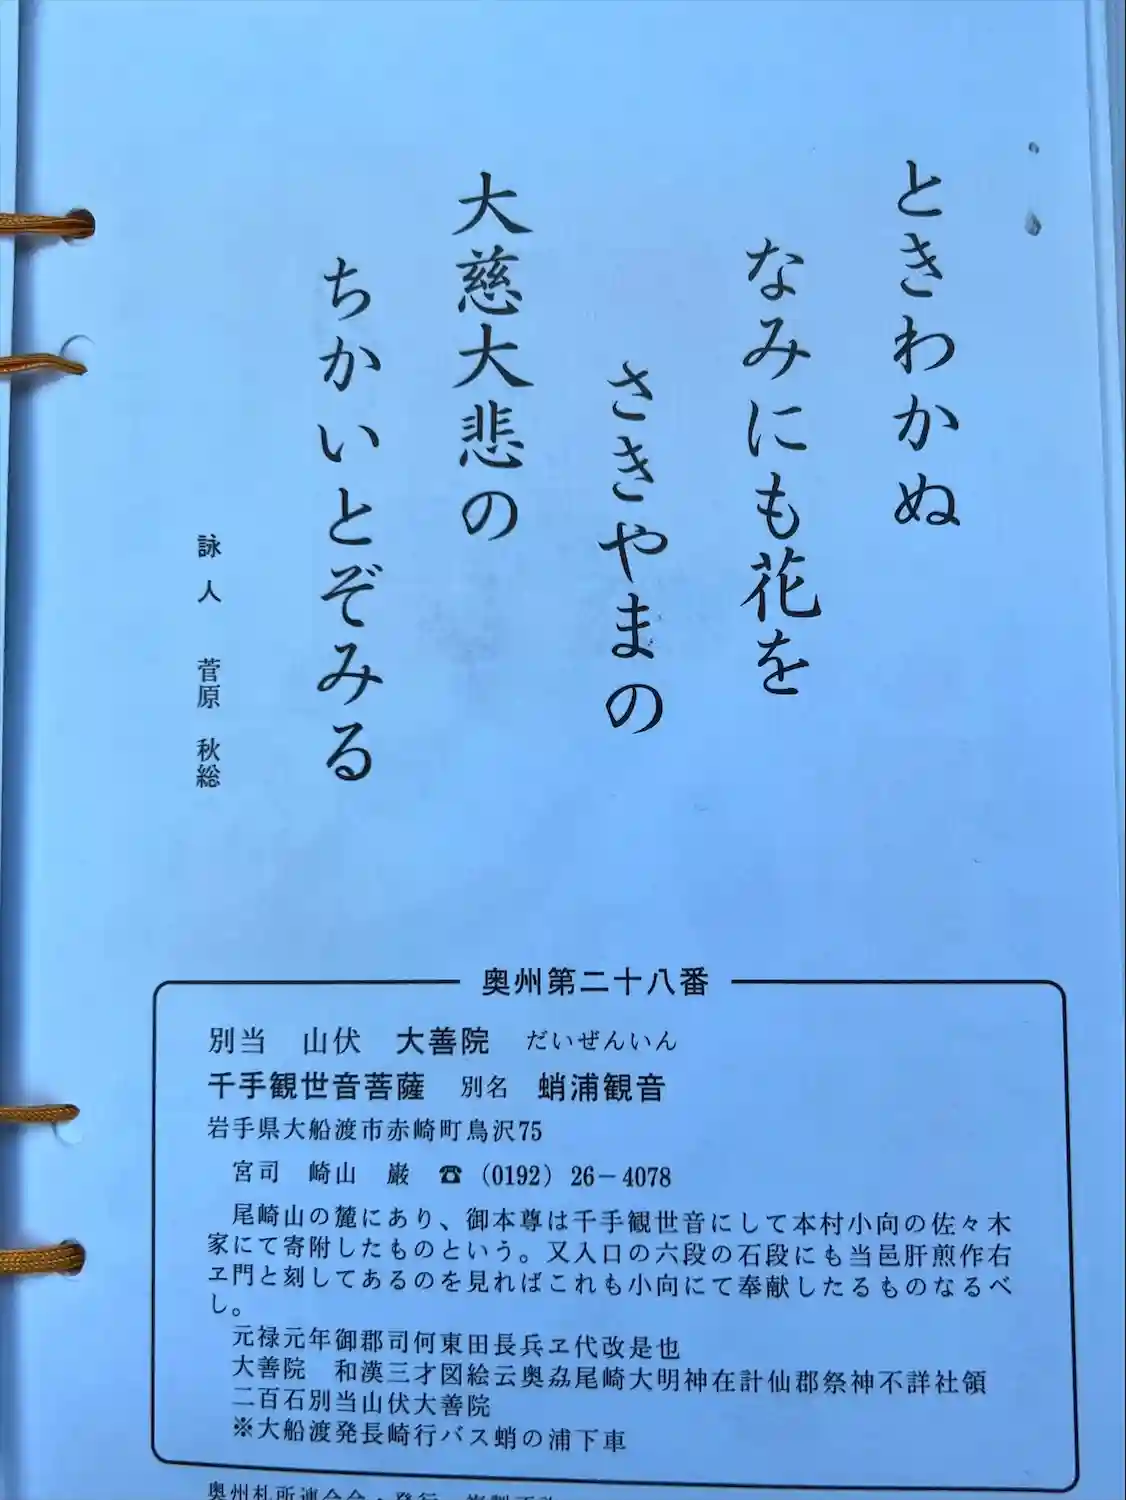 ときわかぬ
なみにも花を
さきやまの
大慈大悲の
ちかいとぞみる
詠人 菅原 秋総
奥州第二十八番
別当 山伏 大善院 だいぜんいん
千手観世音菩薩 別名 蛸浦観音
岩手県大船渡市赤崎町鳥沢75
宮司 崎山 巌 ☎ (0192) 26-4078
尾崎山の麓にあり、御本尊は千手観世音にして本村小向の佐々木
家にて寄附したものという。又入口の六段の石段にも当邑肝煎作右
ヱ門と刻してあるのを見ればこれも小向にて奉献したるものなるべ
し。
元禄元年御郡司何東田長兵ヱ代改是也
大善院 和漢三才図絵云奥刕尾崎大明神在計仙郡祭神不詳社領
二百石別当山伏大善院
※大船渡発長崎行バス蛸の浦下車
奥州札所連合会・発行